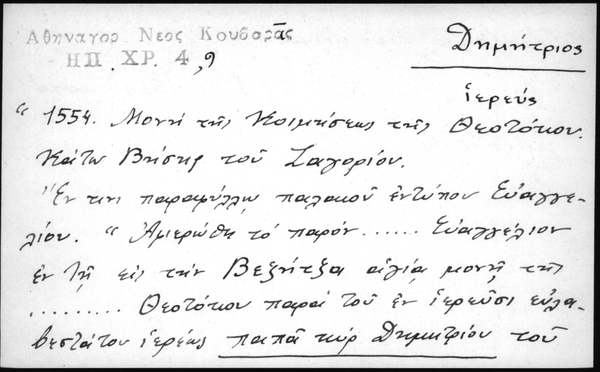 Αθηναγορ Νεος Κουβαρᾶς
ΗΠ. ΧΡ. 4, 9
Δημήτριος
ἱερεύς
" 1554. Μονή τῆς Κοιμήσεως τῆς Θεοτόκου.
Κάτω Βήσης τοῦ Ζαγορίου.
Ἔν τινι παραφύλλῳ παλαιοῦ ἐντύπου Εὐαγγε-
λίου. " Ἀφιερώθη τό παρόν ...... Εὐαγγέλιον
ἐν τῇ εἰς τήν Βεζνίτζα ἁγίᾳ μονῇ τῆς
......... Θεοτόκου παρά τοῦ ἐν ἱερεῦσι εὐλα-
βεστάτου ἱερέως παπᾶ κύρ Δημητρίου τοῦ